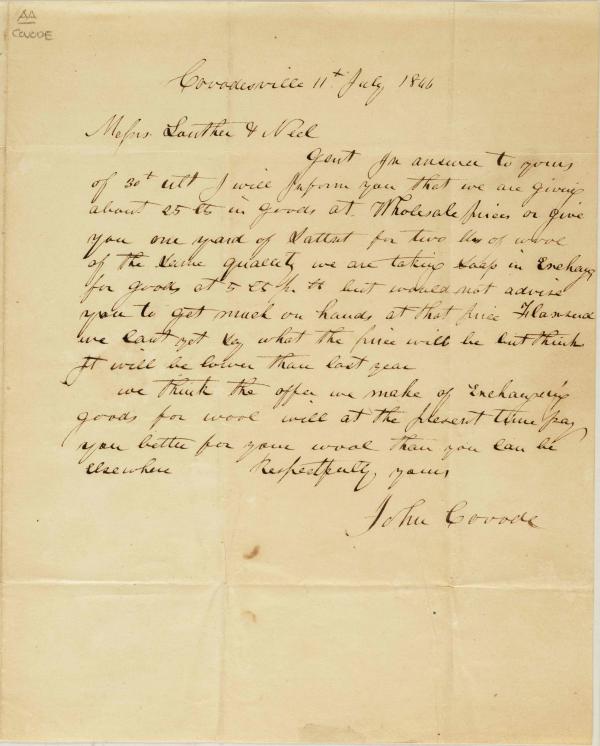 AA
COVODE
Covodesville 11th July 1846
Messrs Lowther & Neel
Gent In answer to yours
of 30th ult I will Inform you that we are giving
about 25 cts in goods at Wholesale prices or give
you one yard of Sattnt for two lbs of wool
of the Same quality we are taking Soap in Exchang
for goods at 5 cts pr lb but would not advise
you to get much on hands at that price
we cant yet Say what the price will be but think
It will be lower than last year
we think the offer we make of Exchangeing
goods for wool will at the present time pay
you better for your wool than you can be
elsewhere Respectfully yours
John Covode